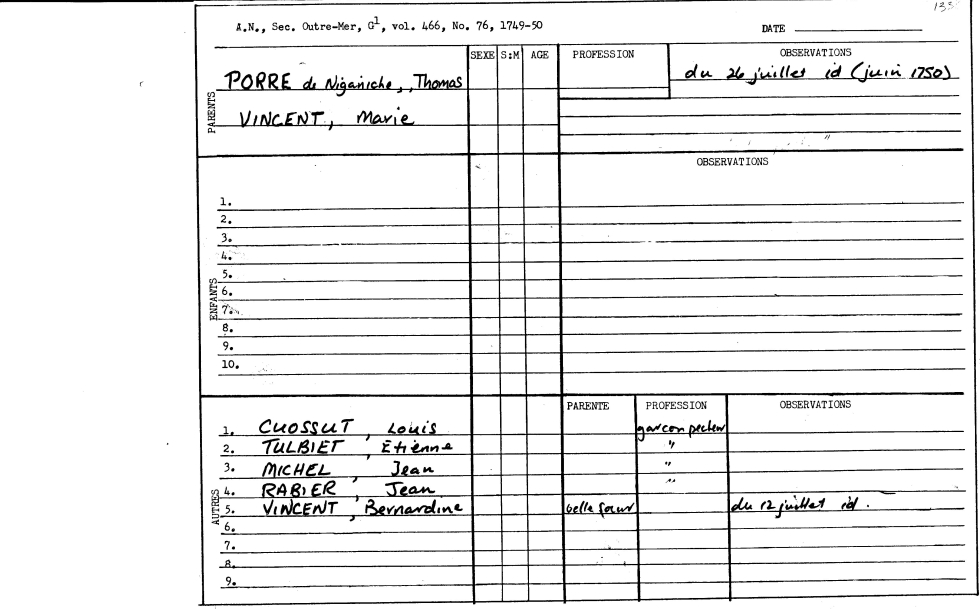 133
A.N., Sec. Outre-Mer, G1, vol. 466, No. 76, 1749-50 DATE
SEXE S:M AGE PROFESSION OBSERVATIONS
PARENTS
PORRE de Niganiche, , Thomas du 26 juillet id (juin 1750)
VINCENT, Marie
"
OBSERVATIONS
ENFANTS
1.
2.
3.
4.
5.
6.
7.
8.
9.
10.
PARENTE PROFESSION OBSERVATIONS
AUTRES
1. CUOSSUT , Louis garcon pecheur
2. TULBIET , Etienne "
3. MICHEL , Jean "
4. RABIER , Jean "
5. VINCENT , Bernardine belle soeur du 12 juillet id.
6.
7.
8.
9.